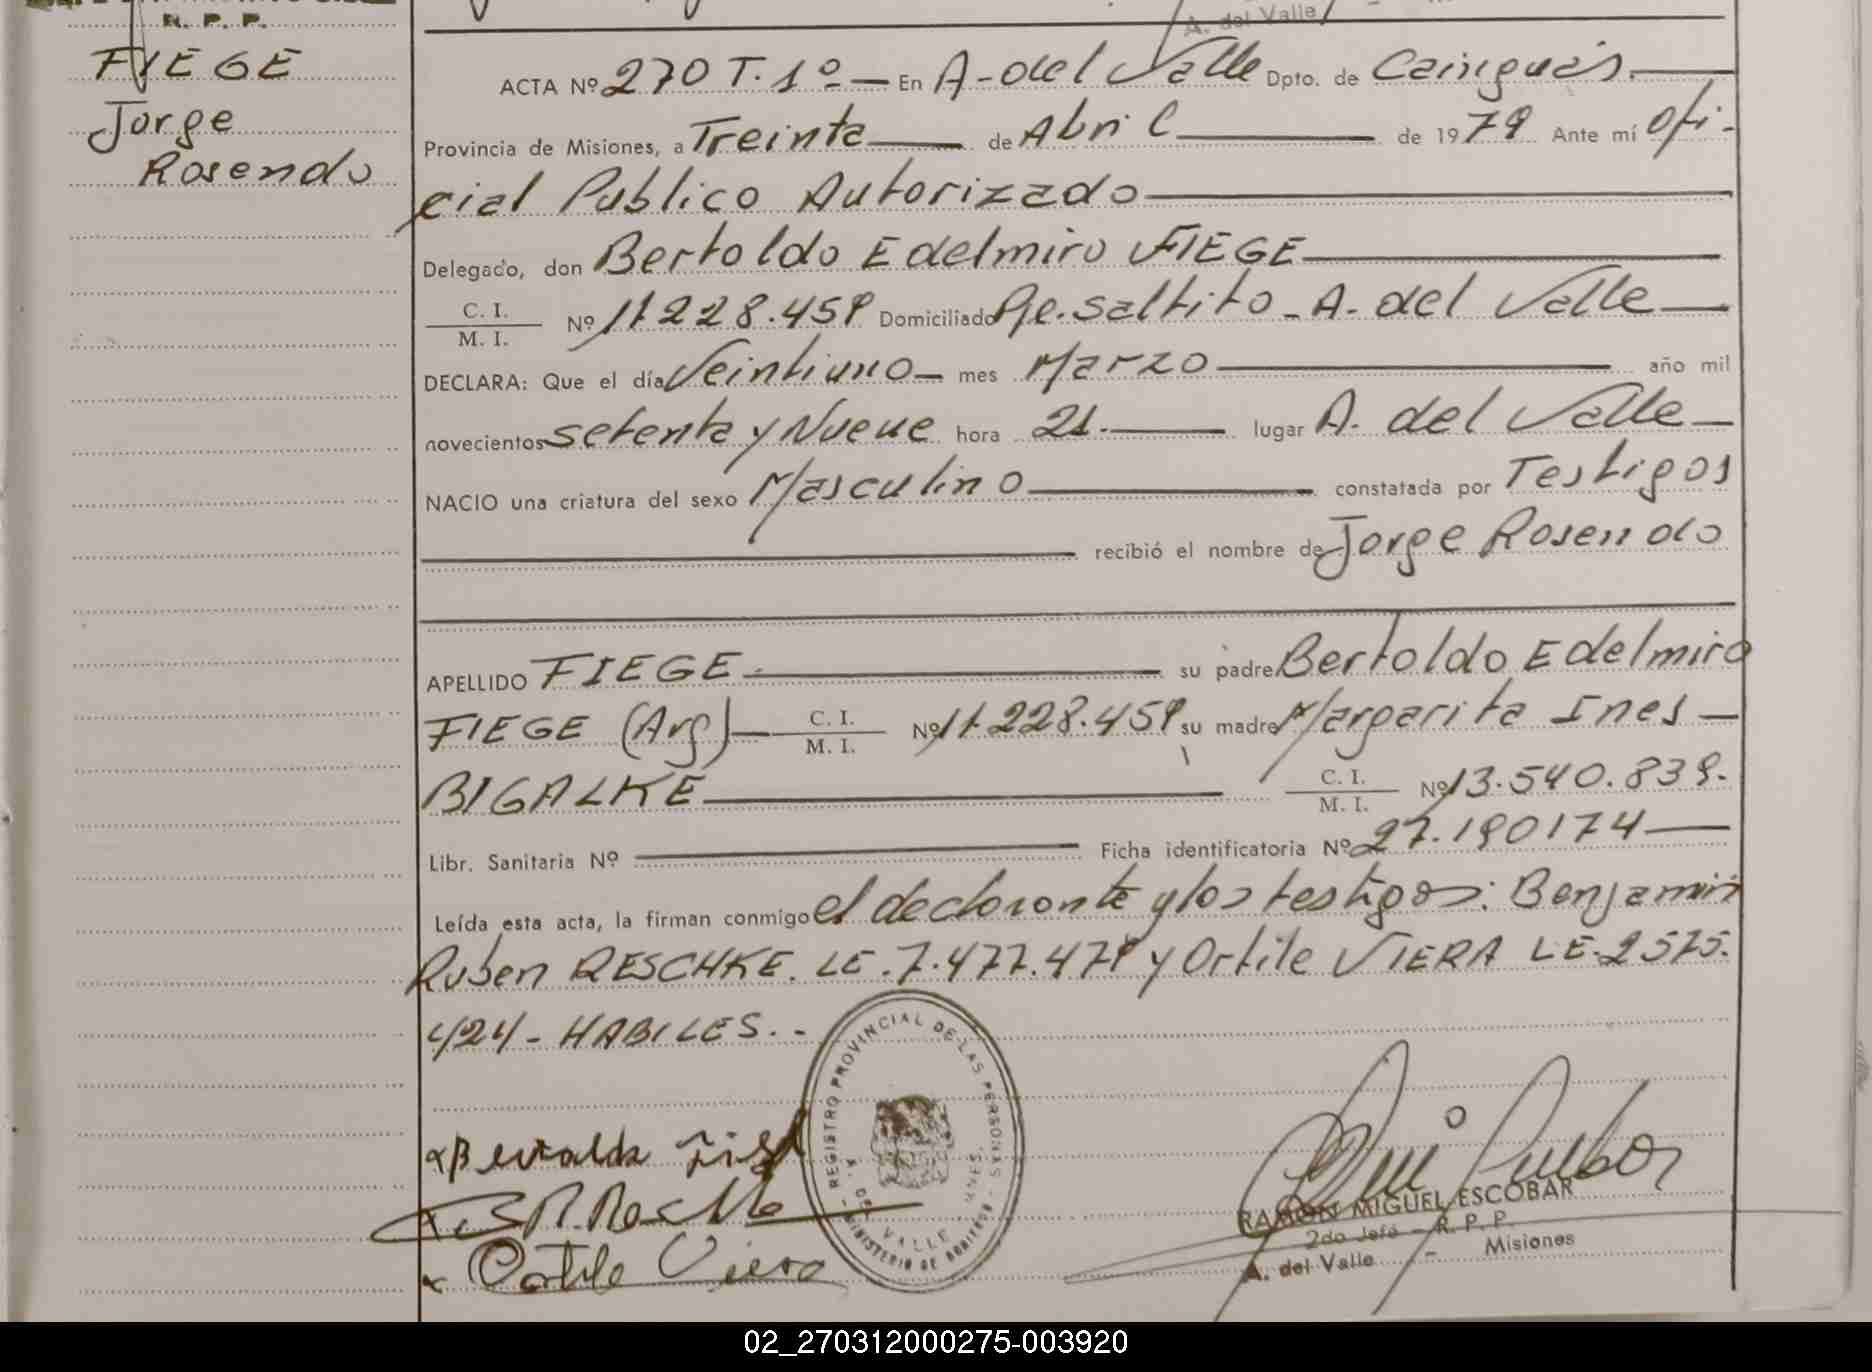 R. P. P.
A. del Valle
FIEGE
Jorge
Rosendo
ACTA Nº 270 T. 1º — En A. del Valle Dpto. de Cainguás.
Provincia de Misiones, a Treinta de Abril de 1979 Ante mí Ofi-
cial Publico Autorizado
Delegado, don Bertoldo Edelmiro FIEGE
C. I.
M. I. Nº 11.228.459 Domiciliado Pje. Saltito - A. del Valle
DECLARA: Que el día Veintiuno mes Marzo año mil
novecientos setenta y Nueve hora 21. lugar A. del Valle
NACIO una criatura del sexo Masculino constatada por Testigos
recibió el nombre de Jorge Rosendo
APELLIDO FIEGE su padre Bertoldo Edelmiro
FIEGE (Arg) C. I.
M. I. Nº 11.228.459 su madre Margarita Ines
BIGALKE C. I.
M. I. Nº 13.540.839.
Libr. Sanitaria Nº Ficha identificatoria Nº 27.190174
Leída esta acta, la firman conmigo el declarante y los testigos: Benjamin
Ruben RESCHKE. LE. 7.477.479 y Ortile VIERA LE. 2575.
424 - HABILES. -
REGISTRO PROVINCIAL DE LAS PERSONAS
A. DEL VALLE MNES.
MINISTERIO DE GOBIERNO
Ortile Viera
RAMON MIGUEL ESCOBAR
2do Jefe - R. P. P.
A. del Valle - Misiones
02_270312000275-003920